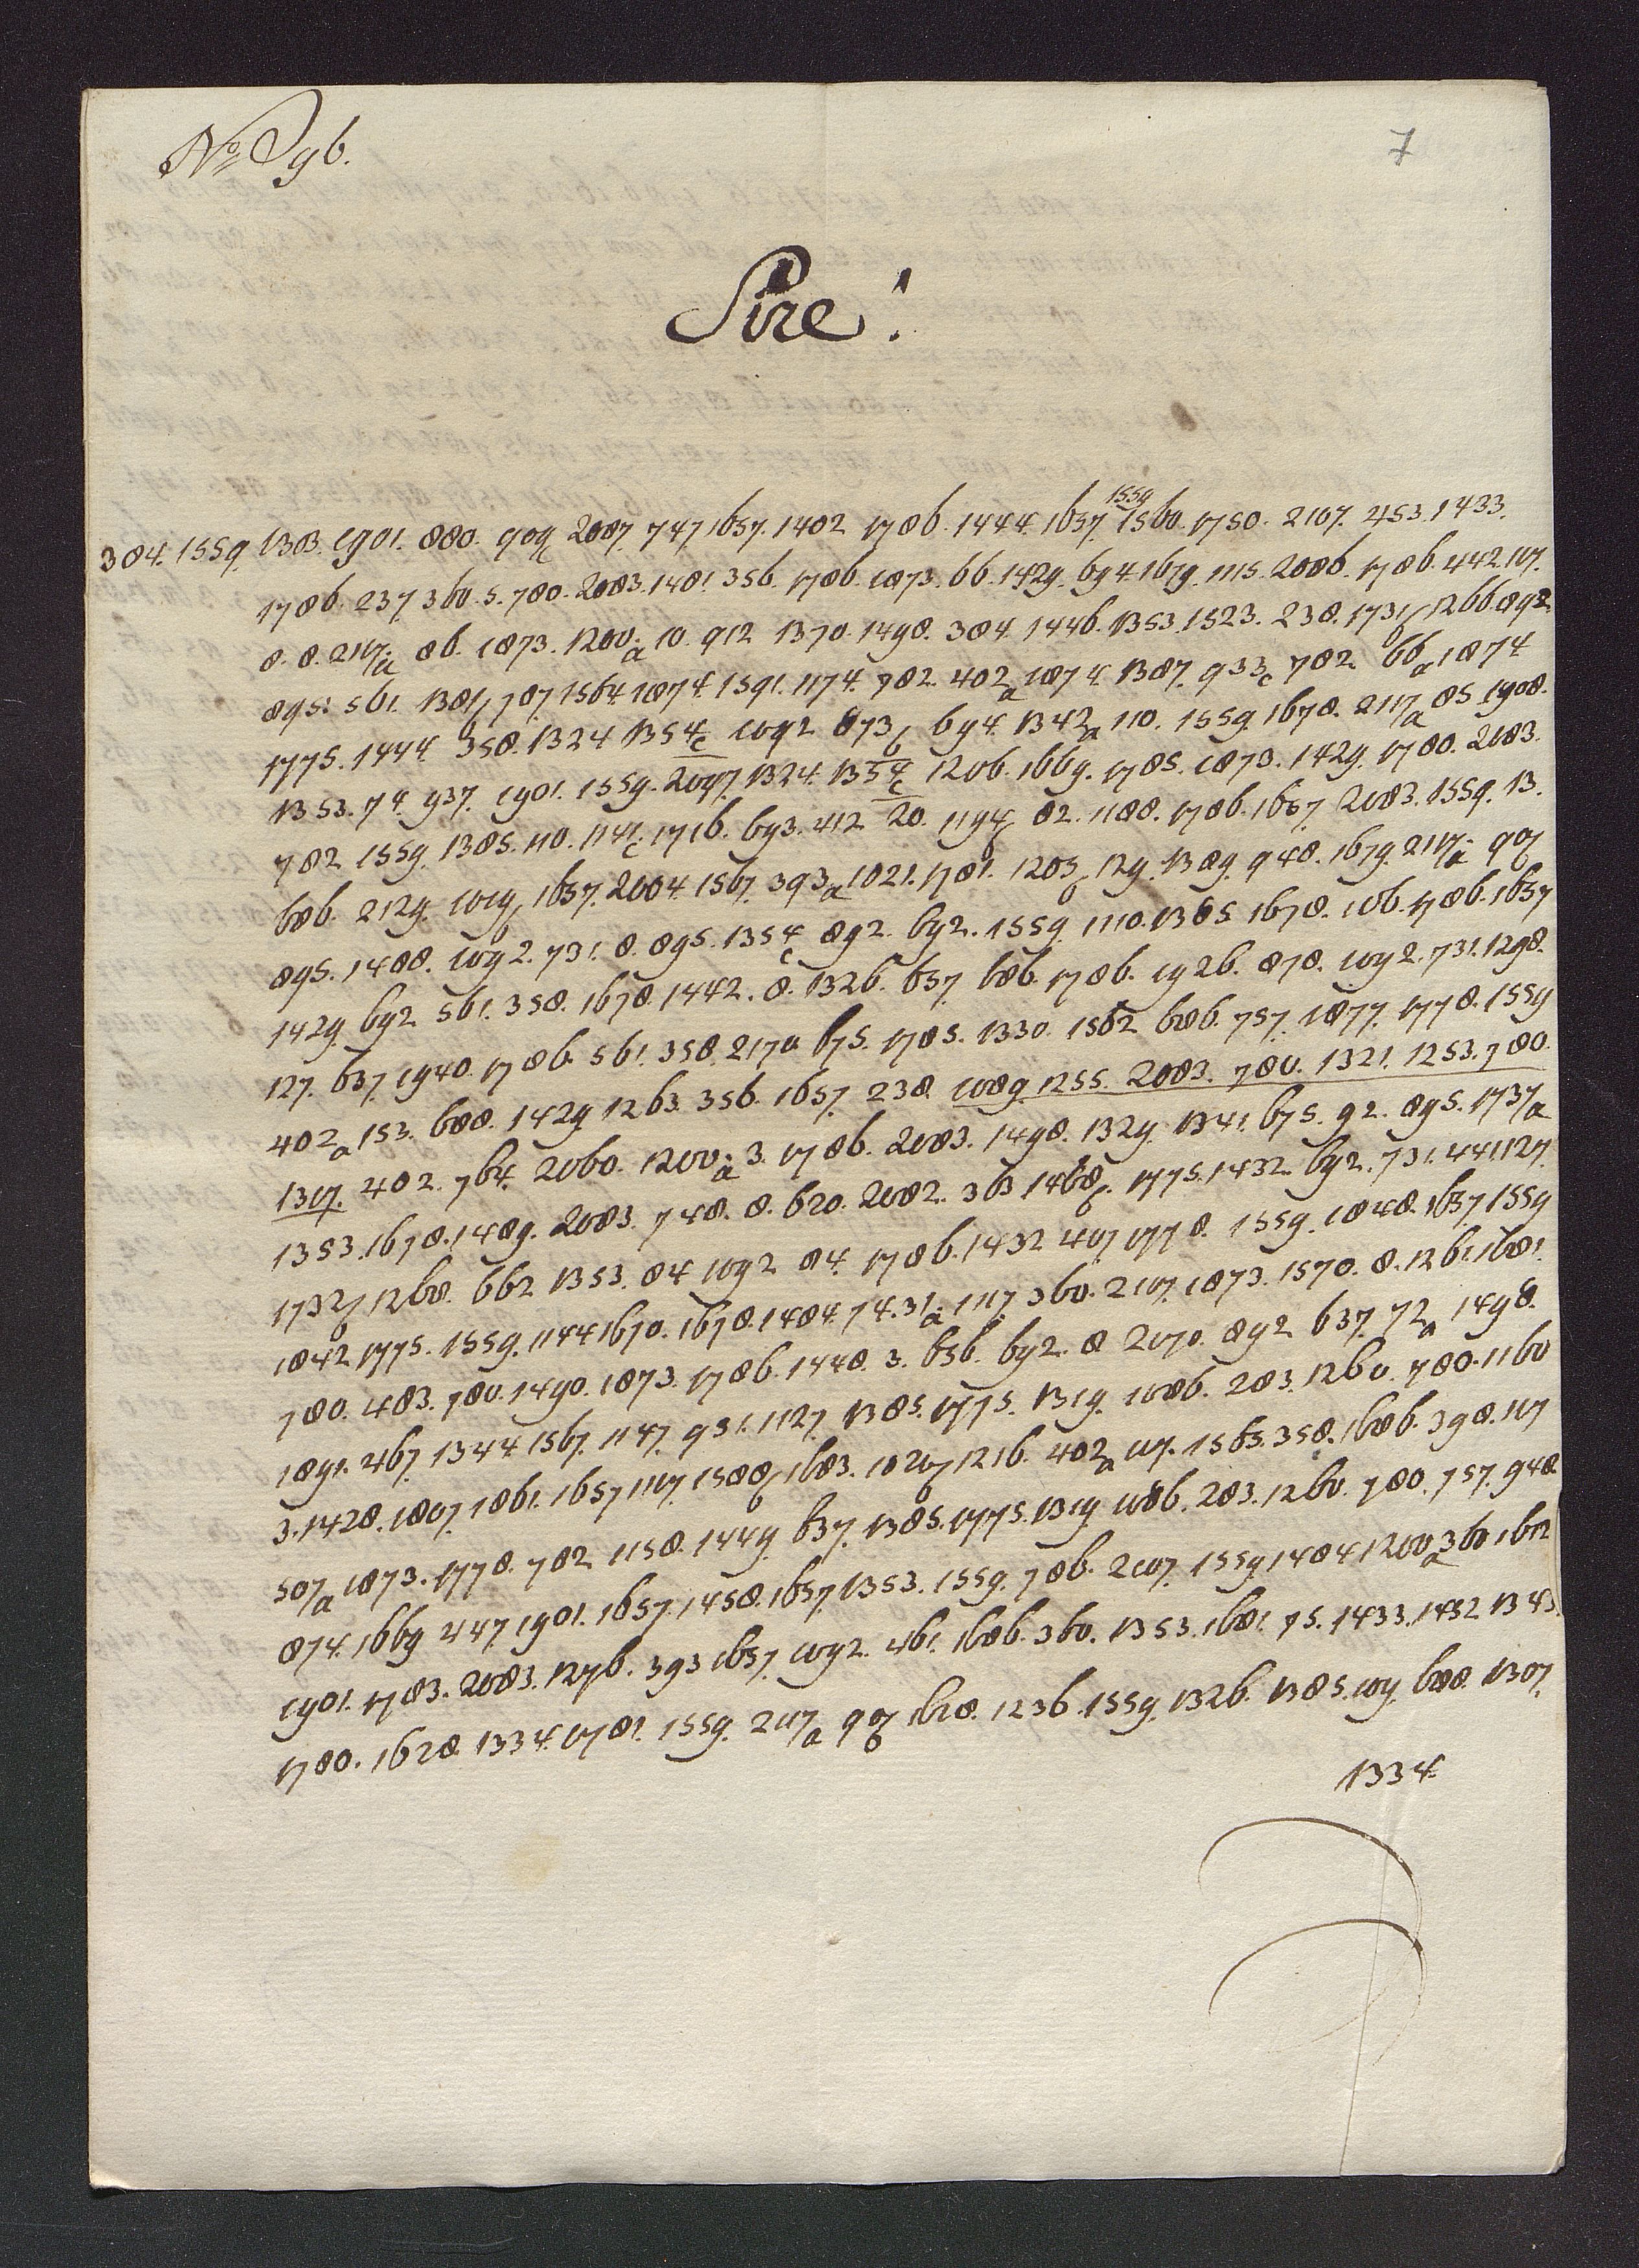 7
Sire!
1559
384. 1559. 1303. 1901. 880. 2087. 747 1657. 1402 1786. 1444. 1657. 1560. 1750. 2107. 453. 1433.
1786. 237 360. 5. 780. 2083. 1481. 356. 1786. 1073. 66. 1429. 694. 1679. 1115. 2086. 1786. 442. 117.
8. 8. 86. 1873. 1200a 10. 912 1370. 1498. 384. 1446. 1353. 1523. 238. 1731b 1266. 892
895. 561. 1381b 707 1564. 1874. 1591. 1174. 782. 402a 1874. 1387. 933c 782. 66a 1874
1775. 1444. 358. 1324 1354c 1092 873b 694. 1342a 110. 1559. 1678. 2117a 85. 1908.
1353. 74. 937. 1901. 1559. 1324. 1354c 1206. 1669. 1785. 1873. 1429. 1780. 2083.
782 1559. 1385. 110. 1141c 1716. 693. 412 20. 1194b 82. 1188. 1786. 1657 2083. 1559. 13.
686. 2129. 1019b 1657. 2004. 1567. 393a 1021. 1781. 1205b 129. 1389. 948. 1679. 2117a 907b
895. 1488. 1092. 731. 8. 895. 1354c 892. 692. 1559. 1110. 1385. 1678. 106. 1786. 1657
1429. 692 561. 358. 1678. 1442. 8. 1326. 657. 686. 1786. 1926. 878. 1092. 731. 1298.
127. 637. 1940. 1786. 561. 358. 217a 675. 1785. 1330. 1562 686. 757. 1877. 1778. 1559
402a 153. 688. 1429 1263. 356. 1657. 238. 1089 1255. 2083. 780. 1321. 1253. 780.
1317. 402. 764. 2060. 1200a 3. 1786. 2083. 1498. 1329. 1341. 675. 92. 895. 1737a
1353. 1678. 1489. 2083. 748. 8. 620. 2082. 363 1775. 1432 692. 731. 441. 127.
1732b 1268. 662 1353. 84 1092 84. 1786. 1432 407 1778. 1559. 1848. 1657 1559
1842 1775. 1559. 1144 1670. 1678. 1484. 74. 31a 1117 360. 2107. 1873. 1570. 8. 1261. 1681.
780. 483. 780. 1490. 1873. 1786. 1448. 3. 656. 692. 8 2070. 892 637. 72a 1498.
1891. 467. 1344 1567. 1147. 931. 1127. 1385. 1775. 1319. 1086. 283. 1260. 780. 1160
3. 1428. 1807. 1861. 1657 1107. 1588b 1683. 1020b 1216. 402a 117. 1565. 358. 1686. 398. 117
507a 1873. 1778. 782 1158. 1449. 637. 1385. 1775. 1319. 1086. 283. 1260. 780. 757. 948
874. 1669 447. 1901. 1657. 1458. 1657. 1353. 1559. 786. 2107. 1559 1484 1200a 360
1901. 1783. 2083. 1276. 393 1657. 1092. 461. 1686. 360. 1353. 1681. 75. 1433. 1432 1343.
1780. 1628. 1334. 1781. 1559. 217a 907b 1628. 1236. 1559. 1326. 1385. 688. 1307.
1334